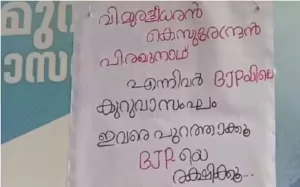 മുന
ാസ
വി.മുരളീധരൻ
കെ.സുരേന്ദ്രൻ
പി.രഘുനാഥ്
എന്നിവർ BJPയിലെ
കുറുവാസംഘം
ഇവരെ പുറത്താക്കൂ
BJP യെ
രക്ഷിക്കൂ...